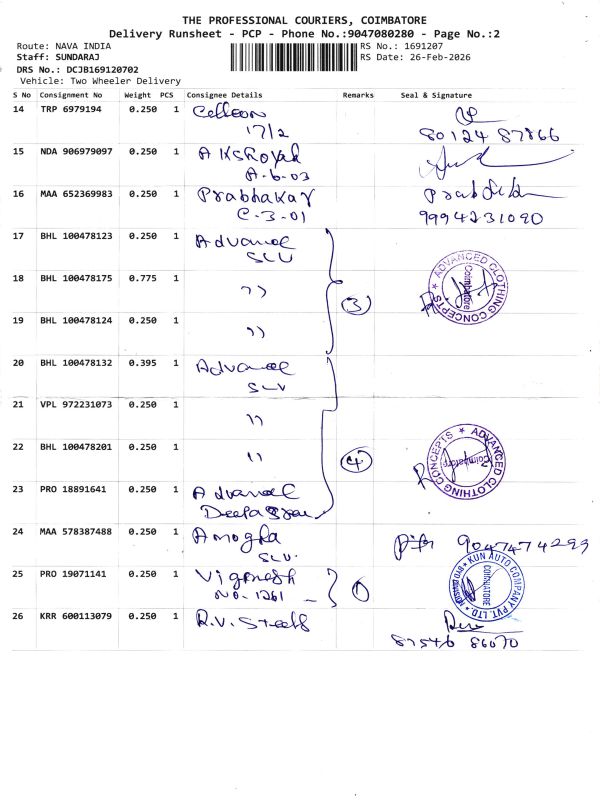 THE PROFESSIONAL COURIERS, COIMBATORE
Delivery Runsheet - PCP - Phone No.:9047080280 - Page No.:2
Route: NAVA INDIA
RS No.: 1691207
Staff: SUNDARAJ
RS Date: 26-Feb-2026
DRS No.: DCJB169120702
Vehicle: Two Wheeler Delivery
S No Consignment No Weight PCS Consignee Details Remarks Seal & Signature
14 TRP 6979194 0.250 1
17/2
80124 87866
15 NDA 906979097 0.250 1
A-6-03
16 MAA 652369983 0.250 1 Prabhakar
C-3-01
9994231090
17 BHL 100478123 0.250 1 Advanced
SLV
18 BHL 100478175 0.775 1 ,,
3
ADVANCED CLOTHING CONCEPTS
Coimbatore
19 BHL 100478124 0.250 1 ,,
20 BHL 100478132 0.395 1 Advanced
SLV
21 VPL 972231073 0.250 1 ,,
22 BHL 100478201 0.250 1 ,,
4
ADVANCED CLOTHING CONCEPTS
Coimbatore
23 PRO 18891641 0.250 1 Advanced
24 MAA 578387488 0.250 1 Amogha
SLV
9047474299
25 PRO 19071141 0.250 1 Vignesh
No. 1261
1
KUN AUTO COMPANY PVT. LTD.
COIMBATORE
26 KRR 600113079 0.250 1 R.V. Steels
87546 86070